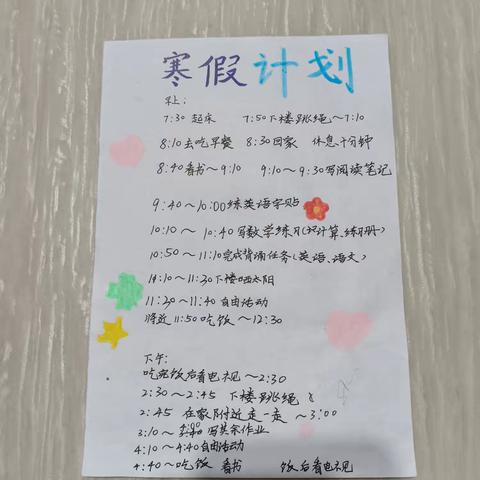 寒假计划
早上：
7:30 起床 7:50下楼跳绳～7:10
8:10去吃早餐 8:30回家 休息十分钟
8:40看书～9:10 9:10～9:30写阅读笔记
9:40～10:00练英语字贴
10:10～10:40写数学练习(计算、练习册)
10:50～11:10完成背诵任务(英语、语文)
11:10～11:30下楼晒太阳
11:30～11:40自由活动
将近11:50吃饭～12:30
下午：
吃完饭后看电视～2:30
2:30～2:45 下楼跳绳
2:45 在家附近走一走～3:00
3:10～4:00写其余作业
4:10～4:40自由活动
4:40～吃饭 看书 饭后看电视